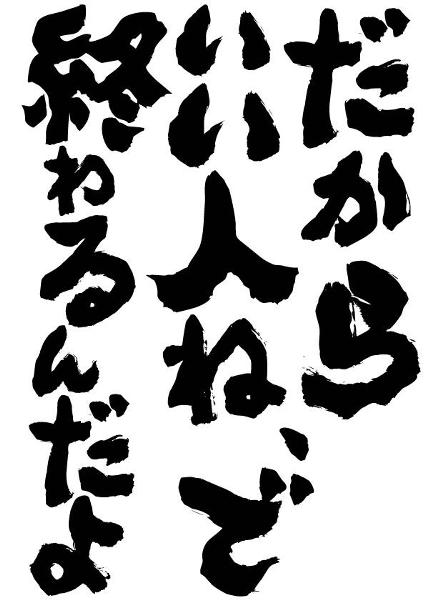 だから
いい人ね、で
終わるんだよ